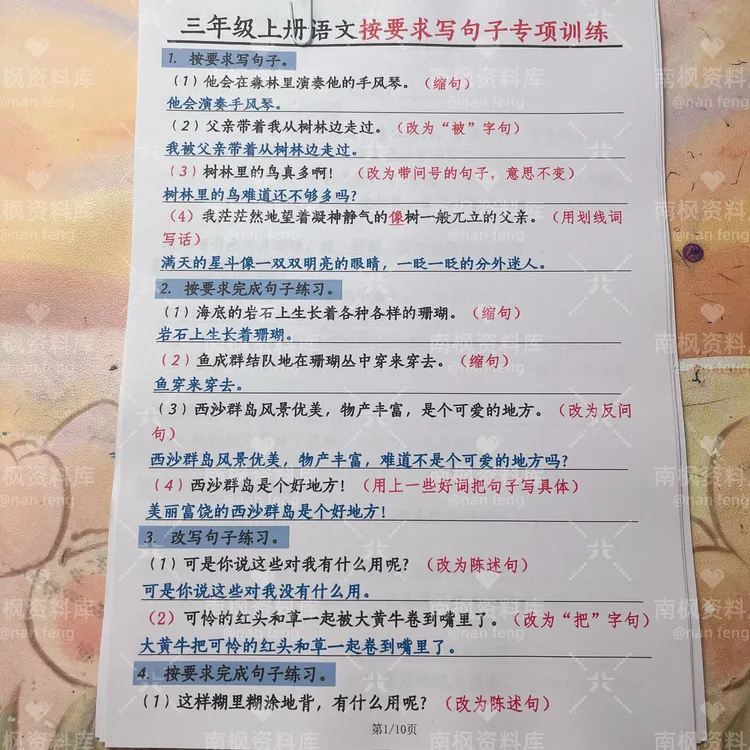 三年级上册语文按要求写句子专项训练
1. 按要求写句子。
（1）他会在森林里演奏他的手风琴。（缩句）
他会演奏手风琴。
（2）父亲带着我从树林边走过。（改为“被”字句）
我被父亲带着从树林边走过。
（3）树林里的鸟真多啊！（改为带问号的句子，意思不变）
树林里的鸟难道还不够多吗？
（4）我茫茫然地望着凝神静气的像树一般兀立的父亲。（用划线词
写话）
满天的星斗像一双双明亮的眼睛，一眨一眨的分外迷人。
2. 按要求完成句子练习。
（1）海底的岩石上生长着各种各样的珊瑚。（缩句）
岩石上生长着珊瑚。
（2）鱼成群结队地在珊瑚丛中穿来穿去。（缩句）
鱼穿来穿去。
（3）西沙群岛风景优美，物产丰富，是个可爱的地方。（改为反问
句）
西沙群岛风景优美，物产丰富，难道不是个可爱的地方吗？
（4）西沙群岛是个好地方！（用上一些好词把句子写具体）
美丽富饶的西沙群岛是个好地方！
3. 改写句子练习。
（1）可是你说这些对我有什么用呢？（改为陈述句）
可是你说这些对我没有什么用。
（2）可怜的红头和草一起被大黄牛卷到嘴里了。（改为“把”字句）
大黄牛把可怜的红头和草一起卷到嘴里了。
4. 按要求完成句子练习。
（1）这样糊里糊涂地背，有什么用呢？（改为陈述句）
第1/10页
南枫资料库
@nan feng